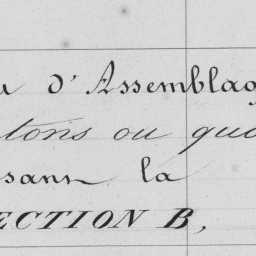 u d'Assemblag
tons ou qua
sant la
ECTION B,